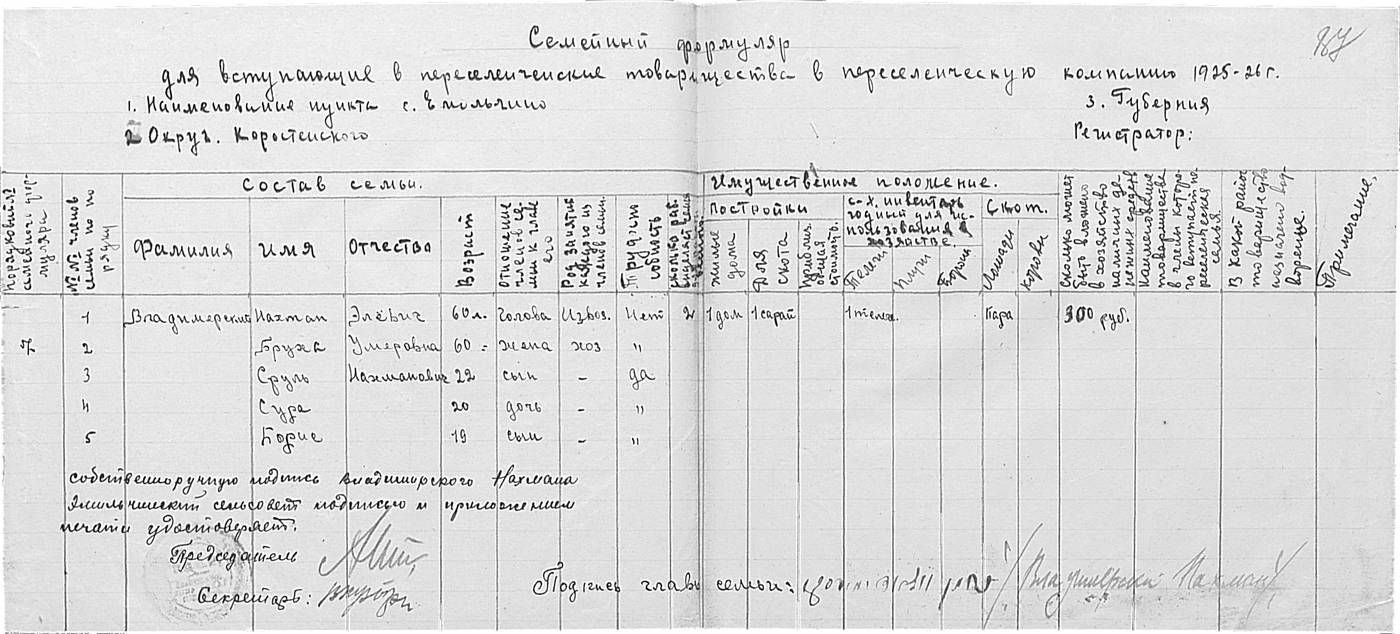 87
Семейный формуляр
для вступающие в переселенческие товарищества в переселенческую компанию 1925-26 г.
1. Наименование пункта с. Емильчино
3. Губерния
2 Округ. Коростенского
Регистратор:
Состав семьи.
Имущественное положение.
Порядковый №
семейных фор-
муляра
№№ членов
семьи по по
рядку
Фамилия
Имя
Отчество
Возраст
отношение
членов се-
мьи к главе
его
Род занятий
каждого из
членов семьи.
Трудоспо
собность
сколько раб.
Постройки
жилые
дома
Для
скота
приблиз.
общая
стоимость.
с-х. инвентарь
годный для ис-
пользования в
хозяйстве.
Телеги
плуги
Бороны
Скот.
Лошади
коровы
Сколько может
быть вложено
в хозяйство
наличных де-
нежных средств
Наименование
товарищества
в члены которо-
го вступает
переселенческая
семья
В какой район
по переселению
назначено вод-
ворение.
Примечание.
7
1 Владимерский Нахман Элёвич 60 л. Голова Извоз. Нет 2 1 дом 1 сарай 1 телег. Пара 300 руб.
2 Бружа Умеровна 60 " жена хоз "
3 Сруль Нахманович 22 сын - да
4 Сура 20 дочь - "
5 Борис 19 сын - "
собственноручную подпись Владимирского Нахмана
Эмильчинский сельсовет подписью и приложением
печати удостоверяет.
Председатель
Секретарь:
Подпись главы семьи: / Владимерский Нахман /